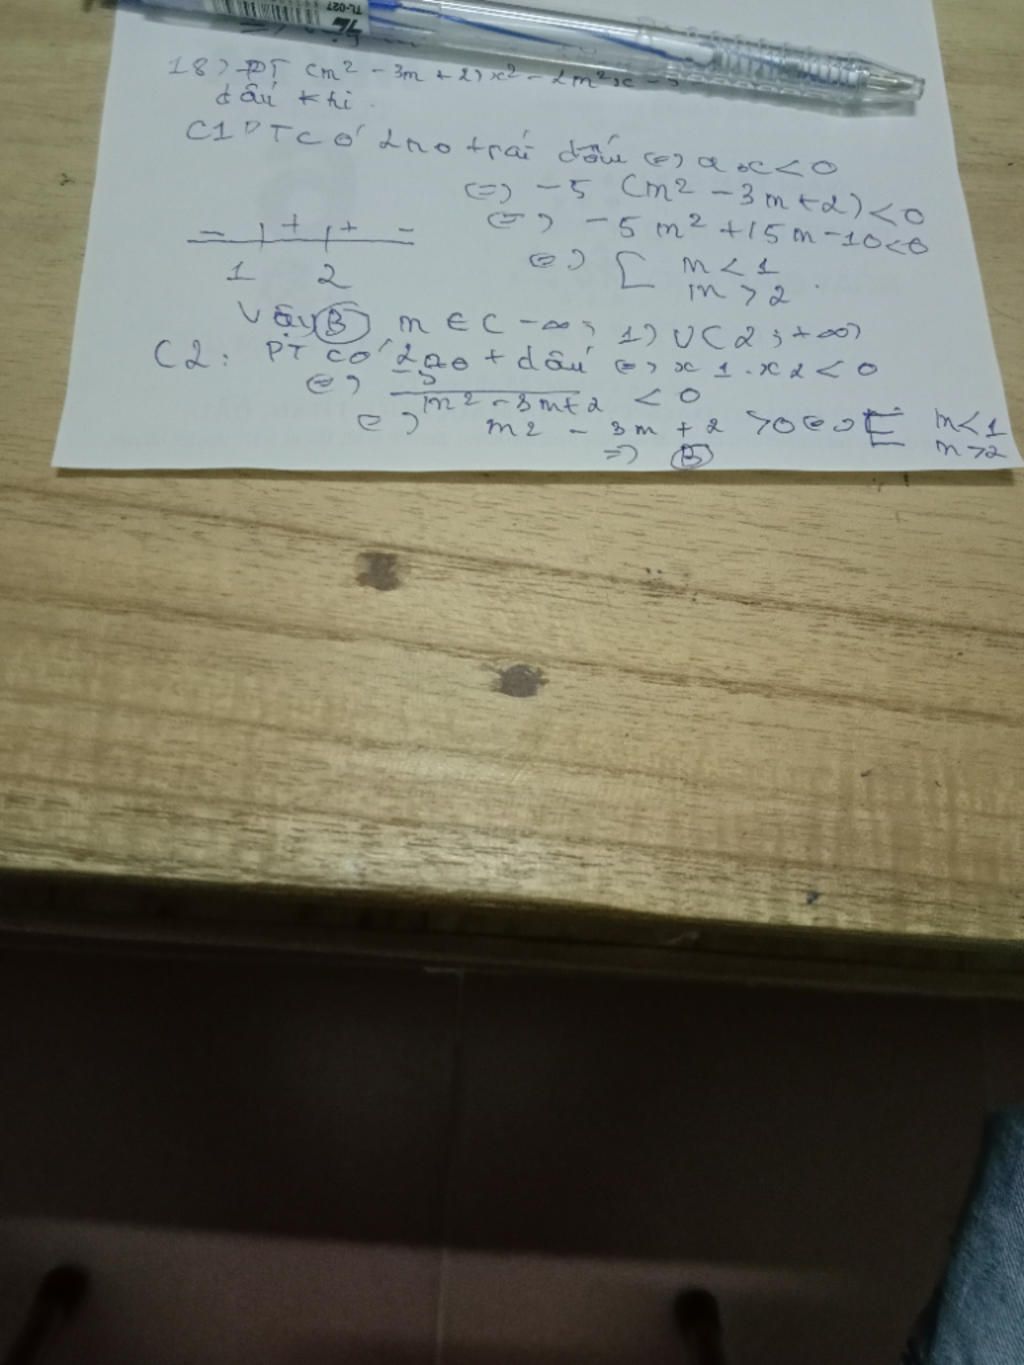 TL-027
18) PT (m² - 3m + 2)x² - 2m²x - 5
dấu khi.
C1 PT có 2no trái dấu <=> a.c < 0
<=> -5 (m2 - 3m + 2) < 0
<=> -5m² + 15m - 10 < 0
- + + -
1 2
<=> [ m < 1
m > 2
Vậy (B) m ∈ (-∞; 1) ∪ (2; +∞)
C2: PT có 2no t dấu <=> x1.x2 < 0
<=> -5 / m2 - 3m + 2 < 0
<=> m2 - 3m + 2 > 0 <=> [ m < 1
m > 2
=> (B)